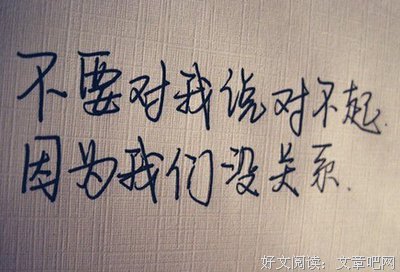 不要对我说对不起.
因为我们没关系.
好文阅读：文章吧网